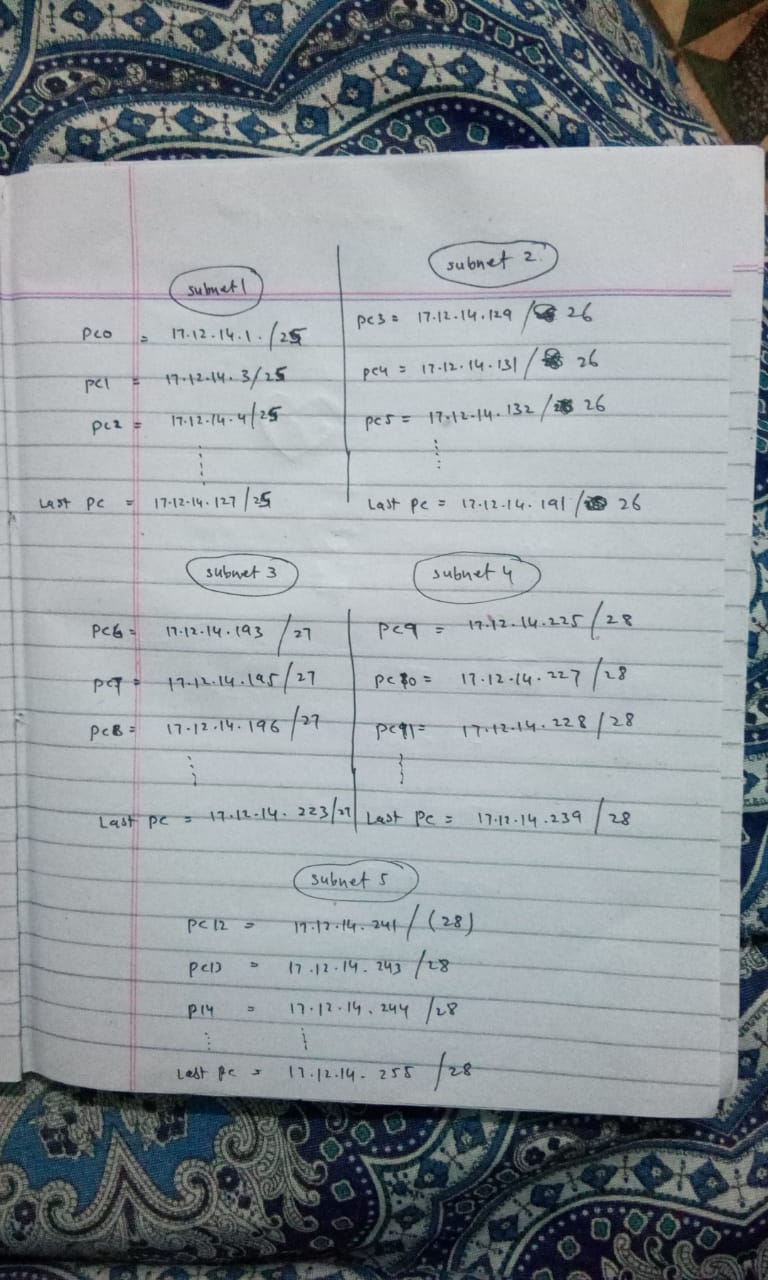 subnet 1
PC0 = 17.12.14.1./25
PC1 = 17.12.14.3/25
PC2 = 17.12.14.4/25
Last PC = 17.12.14.127/25
subnet 2
PC3 = 17.12.14.129/ 26
PC4 = 17.12.14.131/ 26
PC5 = 17.12.14.132/ 26
Last PC = 17.12.14.191/ 26
subnet 3
PC6 = 17.12.14.193/27
PC7 = 17.12.14.195/27
PC8 = 17.12.14.196/27
Last PC = 17.12.14.223/27
subnet 4
PC9 = 17.12.14.225/28
PC10 = 17.12.14.227/28
PC11 = 17.12.14.228/28
Last PC = 17.12.14.239/28
subnet 5
PC12 = 17.12.14.241/(28)
PC13 = 17.12.14.243/28
P14 = 17.12.14.244/28
Last PC = 17.12.14.255/28